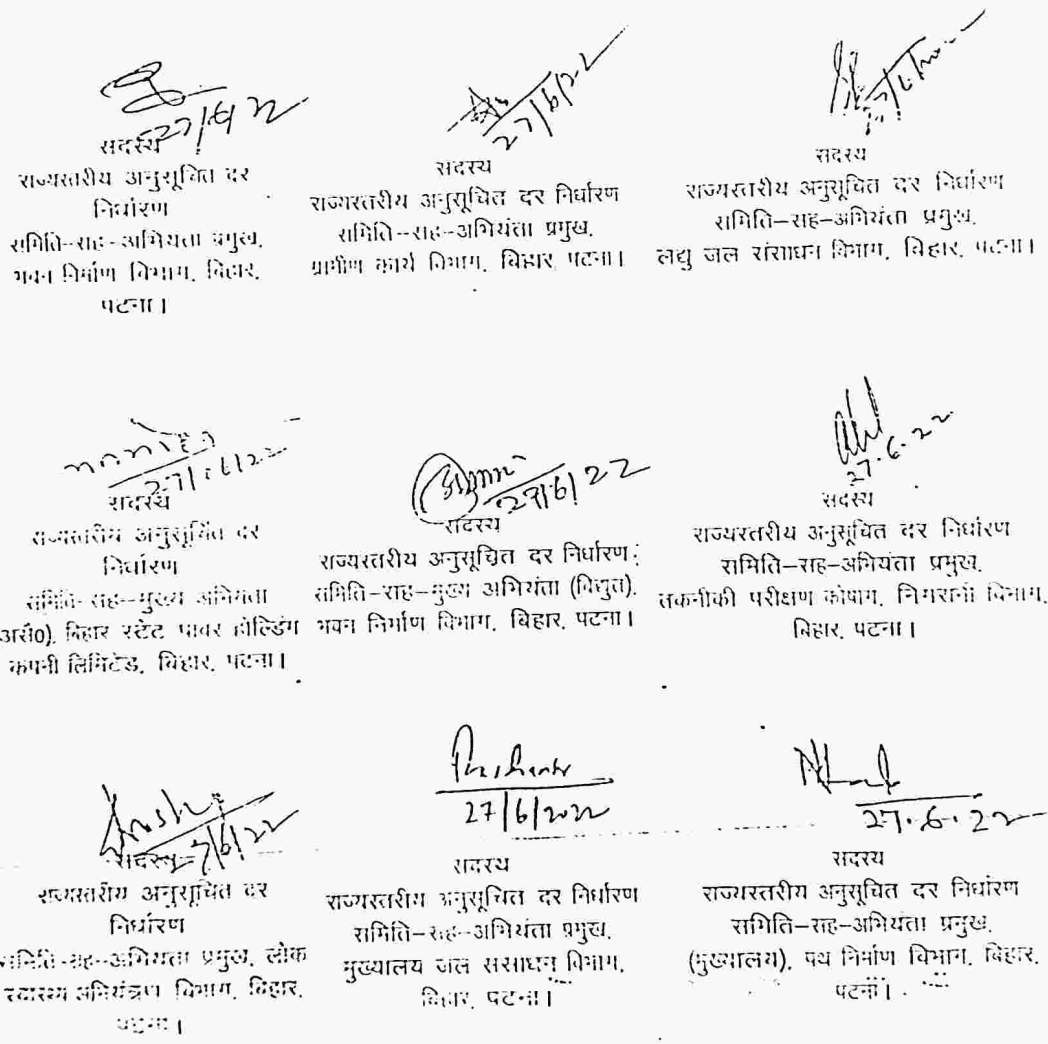 27/6/22
सदस्य
राज्यस्तरीय अनुसूचित दर
निर्धारण
समिति-सह-अभियंता प्रमुख,
भवन निर्माण विभाग, बिहार,
पटना।
27/6/22
सदस्य
राज्यस्तरीय अनुसूचित दर निर्धारण
समिति-सह-अभियंता प्रमुख,
ग्रामीण कार्य विभाग, बिहार, पटना।
सदस्य
राज्यस्तरीय अनुसूचित दर निर्धारण
समिति-सह-अभियंता प्रमुख,
लघु जल संसाधन विभाग, बिहार, पटना।
27/6/22
सदस्य
राज्यस्तरीय अनुसूचित दर
निर्धारण
समिति-सह-मुख्य अभियंता
असै0), बिहार स्टेट पावर होल्डिंग
कंपनी लिमिटेड, बिहार, पटना।
27/6/22
सदस्य
राज्यस्तरीय अनुसूचित दर निर्धारण
समिति-सह-मुख्य अभियंता (विद्युत),
भवन निर्माण विभाग, बिहार, पटना।
27.6.22
सदस्य
राज्यस्तरीय अनुसूचित दर निर्धारण
समिति-सह-अभियंता प्रमुख,
तकनीकी परीक्षण कोषांग, निगरानी विभाग,
बिहार, पटना।
सदस्य
राज्यस्तरीय अनुसूचित दर
निर्धारण
समिति-सह-अभियंता प्रमुख, लोक
स्वास्थ्य अभियंत्रण विभाग, बिहार,
पटना।
27/6/2022
सदस्य
राज्यस्तरीय अनुसूचित दर निर्धारण
समिति-सह-अभियंता प्रमुख,
मुख्यालय जल संसाधन विभाग,
बिहार, पटना।
27.6.22
सदस्य
राज्यस्तरीय अनुसूचित दर निर्धारण
समिति-सह-अभियंता प्रमुख,
(मुख्यालय), पथ निर्माण विभाग, बिहार,
पटना।